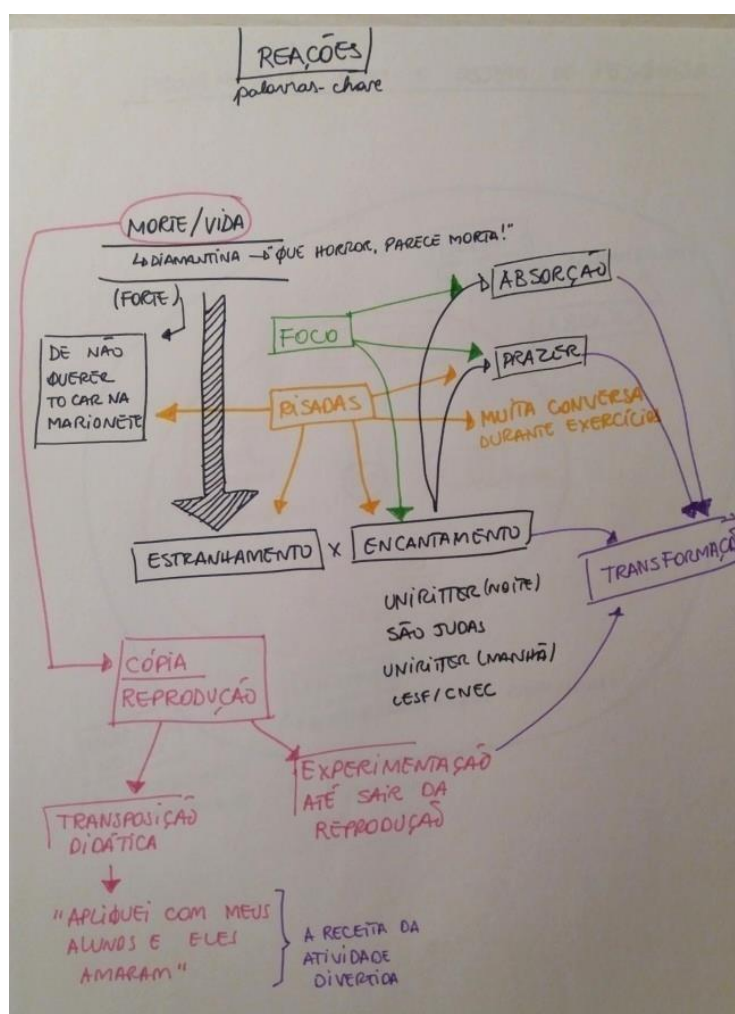 REAÇÕES
palavras-chave
MORTE/VIDA
↳ DIAMANTINA → "QUE HORROR, PARECE MORTA!"
(FORTE)
DE NÃO
QUERER
TOCAR NA
MARIONETE
FOCO
RISADAS
ABSORÇÃO
PRAZER
MUITA CONVERSA
DURANTE EXERCÍCIOS
ESTRANHAMENTO X ENCANTAMENTO
TRANSFORMAÇÃO
UNIRITTER (NOITE)
SÃO JUDAS
UNIRITTER (MANHÃ)
CESF/CNEC
CÓPIA
REPRODUÇÃO
EXPERIMENTAÇÃO
ATÉ SAIR DA
REPRODUÇÃO
TRANSPOSIÇÃO
DIDÁTICA
"APLIQUEI COM MEUS
ALUNOS E ELES
AMARAM"
A RECEITA DA
ATIVIDADE
DIVERTIDA